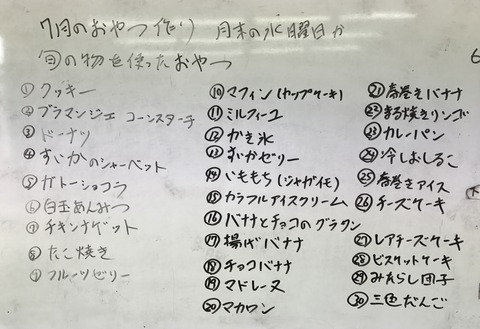 7月のおやつ作り 月末の水曜日か
旬の物を使ったおやつ
①クッキー
②ブラマンジェ コーンスターチ
③ドーナツ
④すいかのシャーベット
⑤ガトーショコラ
⑥白玉あんみつ
⑦チキンナゲット
⑧たこ焼き
⑨フルーツゼリー
⑩マフィン(カップケーキ)
⑪ミルフィーユ
⑫かき氷
⑬すいかゼリー
⑭いももち(ジャガイモ)
⑮カラフルアイスクリーム
⑯バナナとチョコのグラタン
⑰揚げバナナ
⑱チョコバナナ
⑲マドレーヌ
⑳マカロン
㉑春巻きバナナ
㉒まる焼きリンゴ
㉓カレーパン
㉔冷しおしるこ
㉕春巻きアイス
㉖チーズケーキ
㉗レアチーズケーキ
㉘ビスケットケーキ
㉙みたらし団子
㉚三色だんご